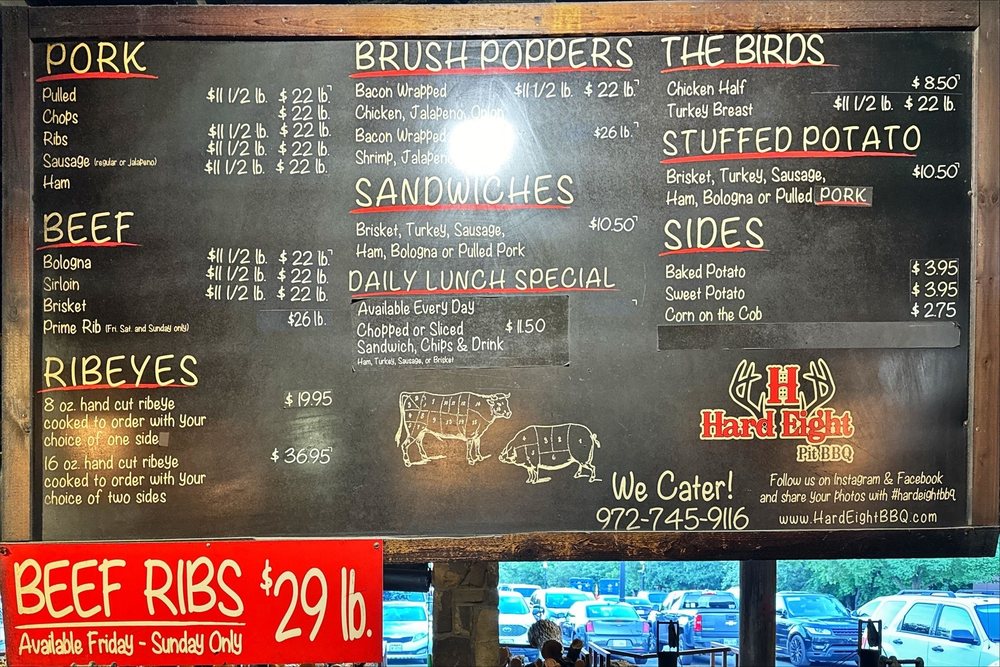 PORK
Pulled $11 1/2 lb. $22 lb.
Chops $22 lb.
Ribs $11 1/2 lb. $22 lb.
Sausage (regular or jalapeno) $11 1/2 lb. $22 lb.
Ham $11 1/2 lb. $22 lb.
BEEF
Bologna $11 1/2 lb. $22 lb.
Sirloin $11 1/2 lb. $22 lb.
Brisket $11 1/2 lb. $22 lb.
Prime Rib (Fri. Sat. and Sunday only) $26 lb.
RIBEYES
8 oz. hand cut ribeye $19.95
cooked to order with your
choice of one side
16 oz. hand cut ribeye $36.95
cooked to order with your
choice of two sides
BRUSH POPPERS
Bacon Wrapped $11 1/2 lb. $22 lb.
Chicken, Jalapeno, Onion
Bacon Wrapped $26 lb.
Shrimp, Jalapeno
SANDWICHES
Brisket, Turkey, Sausage, $10.50
Ham, Bologna or Pulled Pork
DAILY LUNCH SPECIAL
Available Every Day
Chopped or Sliced $11.50
Sandwich, Chips & Drink
Ham, Turkey, Sausage, or Brisket
We Cater!
972-745-9116
THE BIRDS
Chicken Half $8.50
Turkey Breast $11 1/2 lb. $22 lb.
STUFFED POTATO
Brisket, Turkey, Sausage, $10.50
Ham, Bologna or Pulled PORK
SIDES
Baked Potato $3.95
Sweet Potato $3.95
Corn on the Cob $2.75
H
Hard Eight
Pit BBQ
Follow us on Instagram & Facebook
and share your photos with #hardeightbbq
www.HardEightBBQ.com
BEEF RIBS $29 lb.
Available Friday - Sunday Only